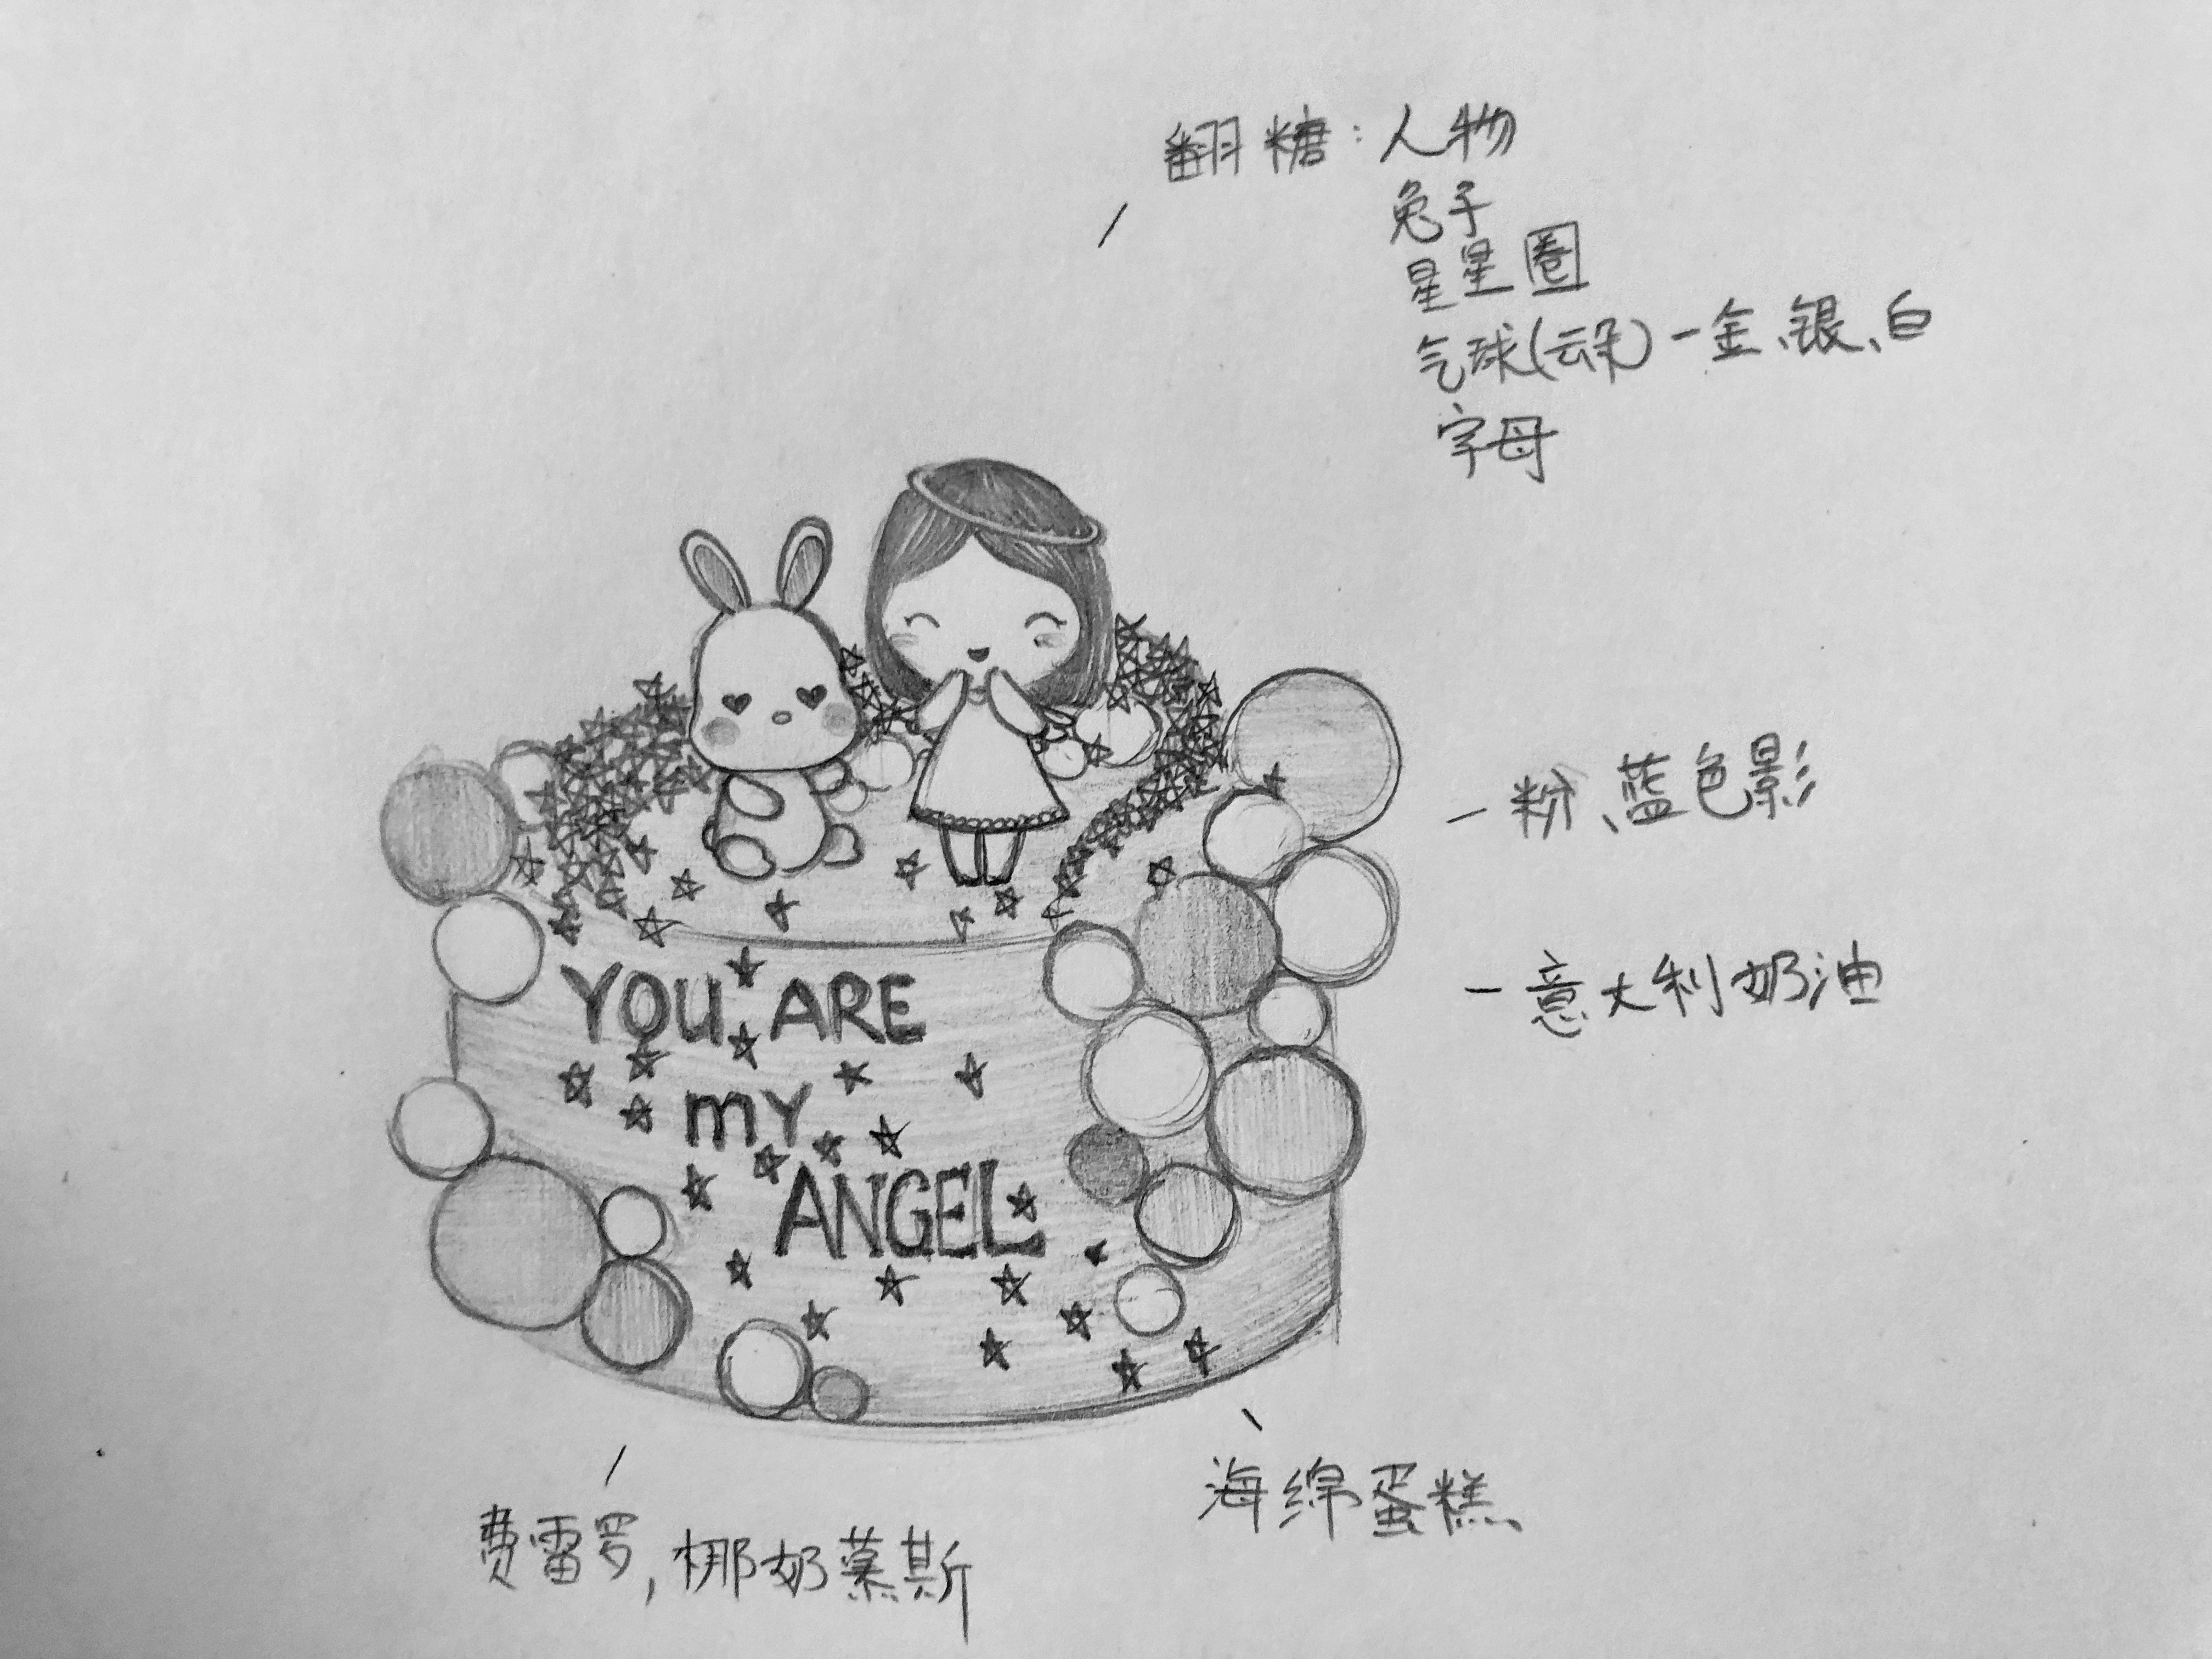 翻糖：人物
兔子
星星圈
气球(云朵)－金、银、白
字母
－粉、蓝色影
－意大利奶油
YOU ARE
my
ANGEL
海绵蛋糕、
费雷罗，椰奶慕斯